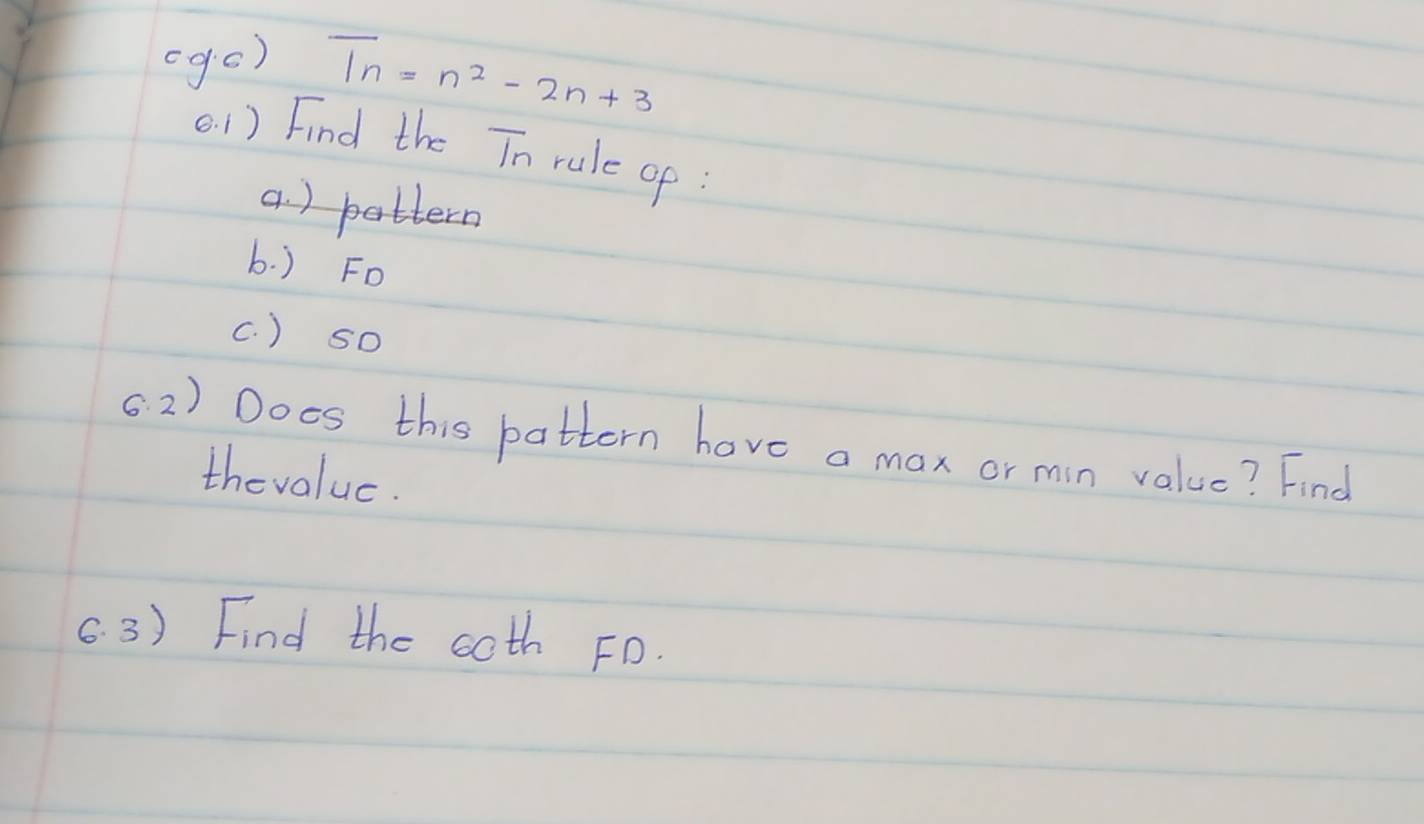 eg.6) Tn = n² - 2n + 3
6.1) Find the Tn rule of :
a.) pattern
b.) FD
c.) SD
6.2) Does this pattern have a max or min value? Find
the value.
6.3) Find the 60th FD.